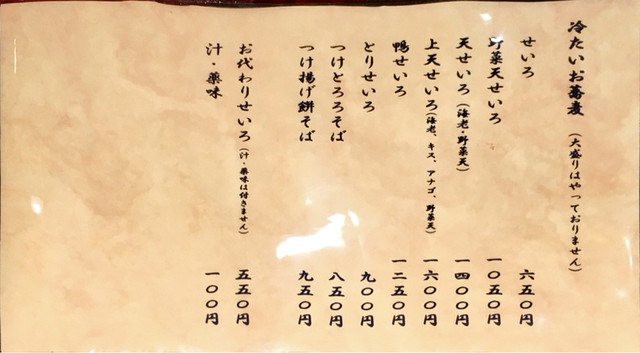 冷たいお蕎麦（大盛りはやっておりません）
せいろ 六五〇円
野菜天せいろ 一〇五〇円
天せいろ（海老・野菜天） 一四〇〇円
上天せいろ（海老、キス、アナゴ、野菜天） 一六〇〇円
鴨せいろ 一二五〇円
とりせいろ 九〇〇円
つけとろろそば 八五〇円
つけ揚げ餅そば 九五〇円
お代わりせいろ（汁・薬味は付きません） 五五〇円
汁・薬味 一〇〇円